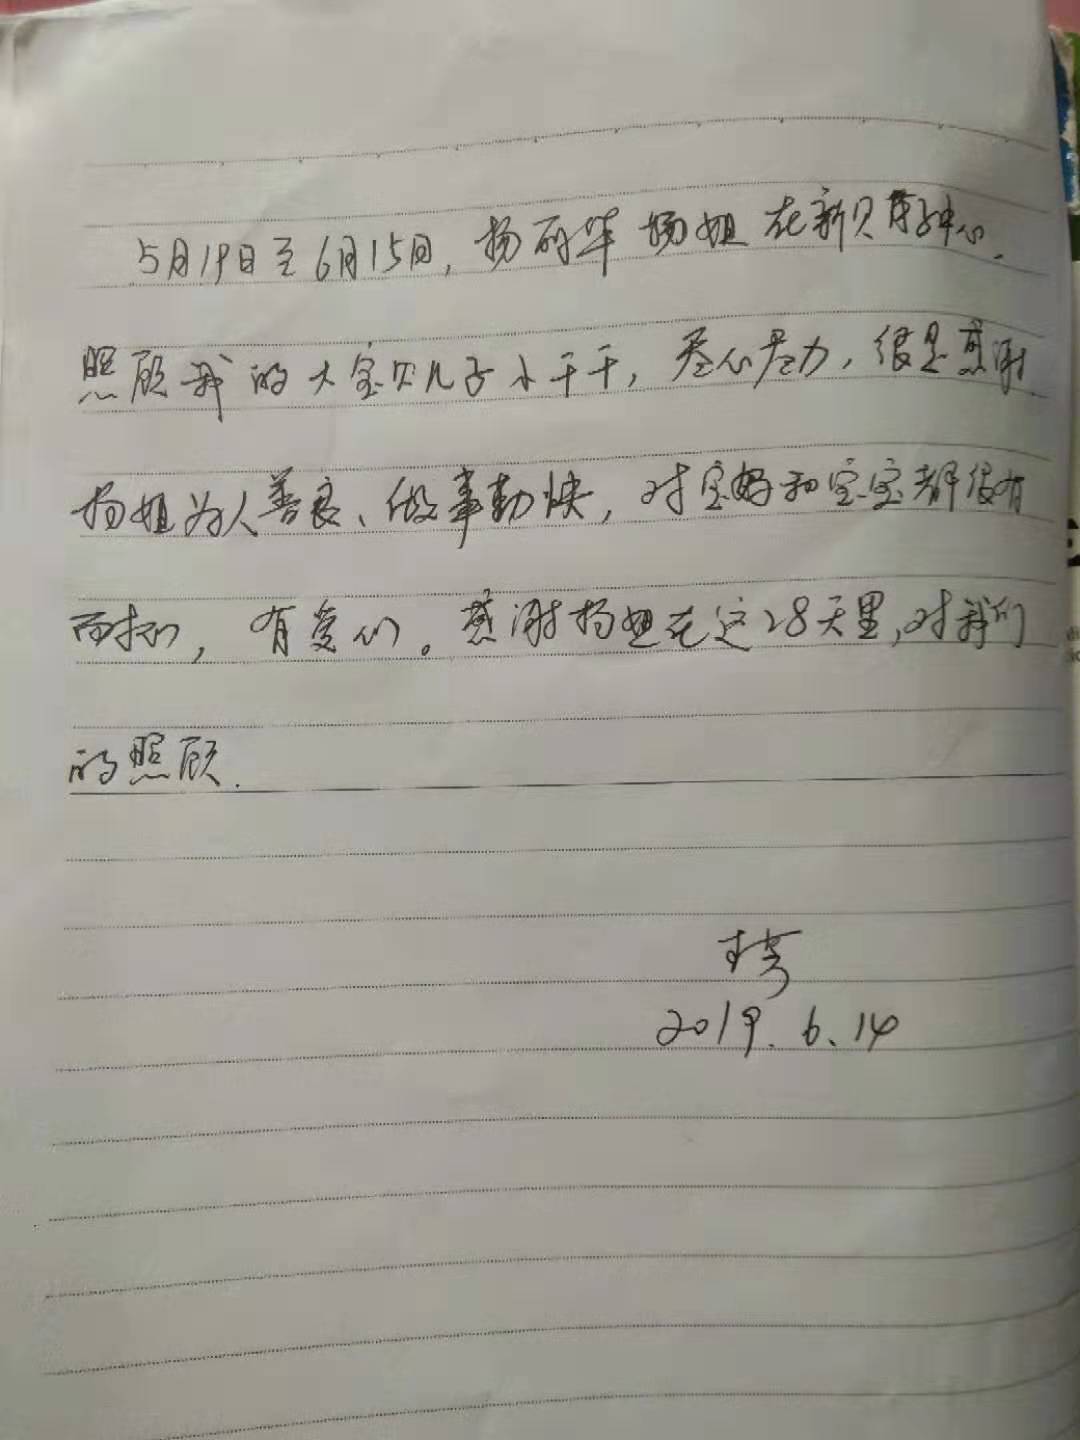 5月19日至6月15日，杨丽华 杨姐 在新贝月子中心
照顾我的大宝贝儿子小千千，尽心尽力，很是感谢
杨姐为人善良、做事勤快，对宝妈和宝宝都很有
耐心，有爱心。感谢杨姐在这28天里，对我们
的照顾.
2019.6.14